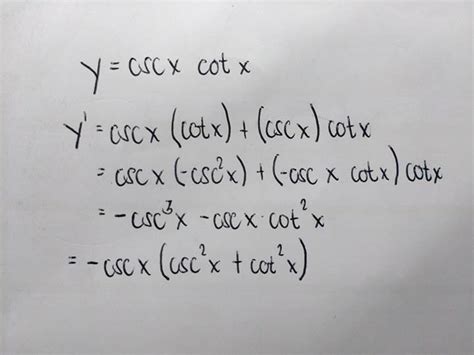 y = csc x cot x
y' = csc x (cot x) + (csc x) cot x
= csc x (-csc²x) + (-csc x cot x) cot x
= -csc³x - csc x · cot²x
= -csc x (csc²x + cot²x)